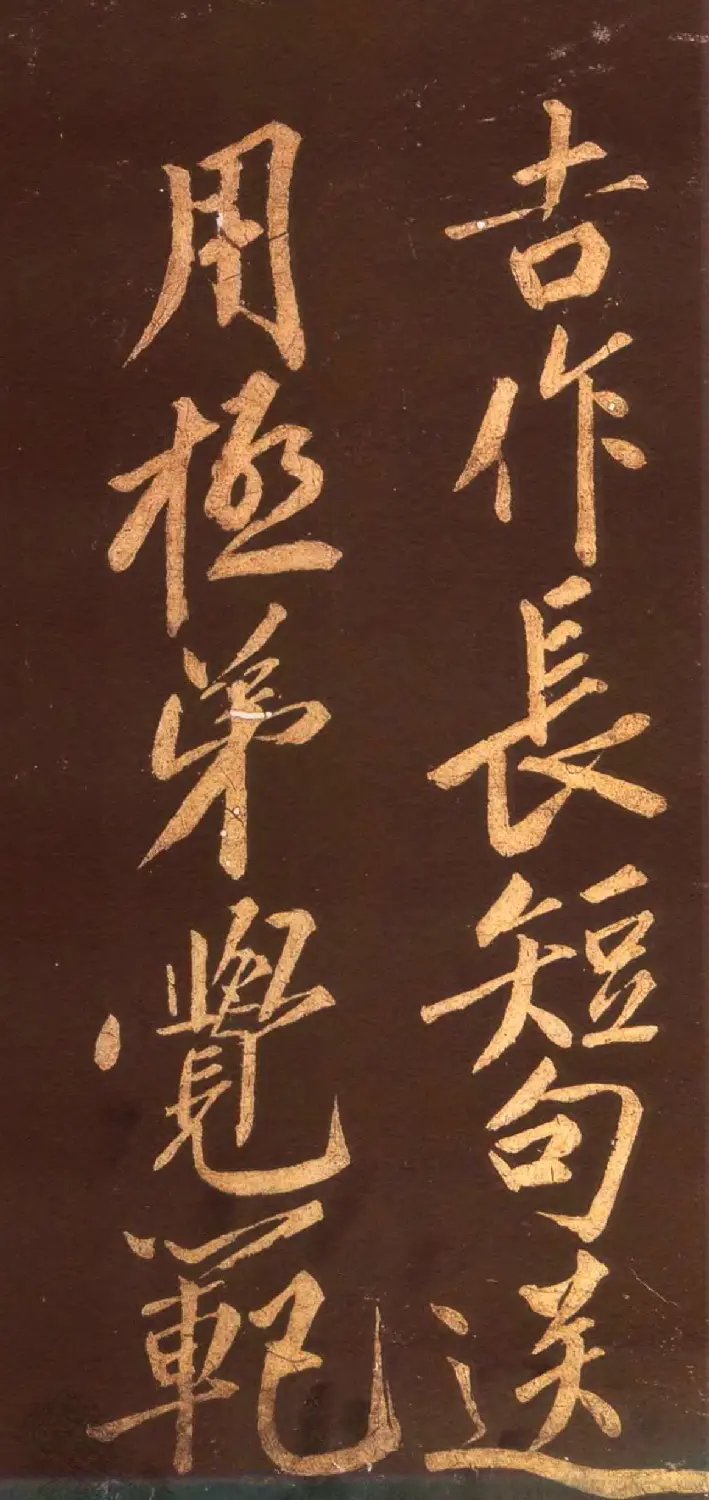 吉作長短句送
用極弟覺範